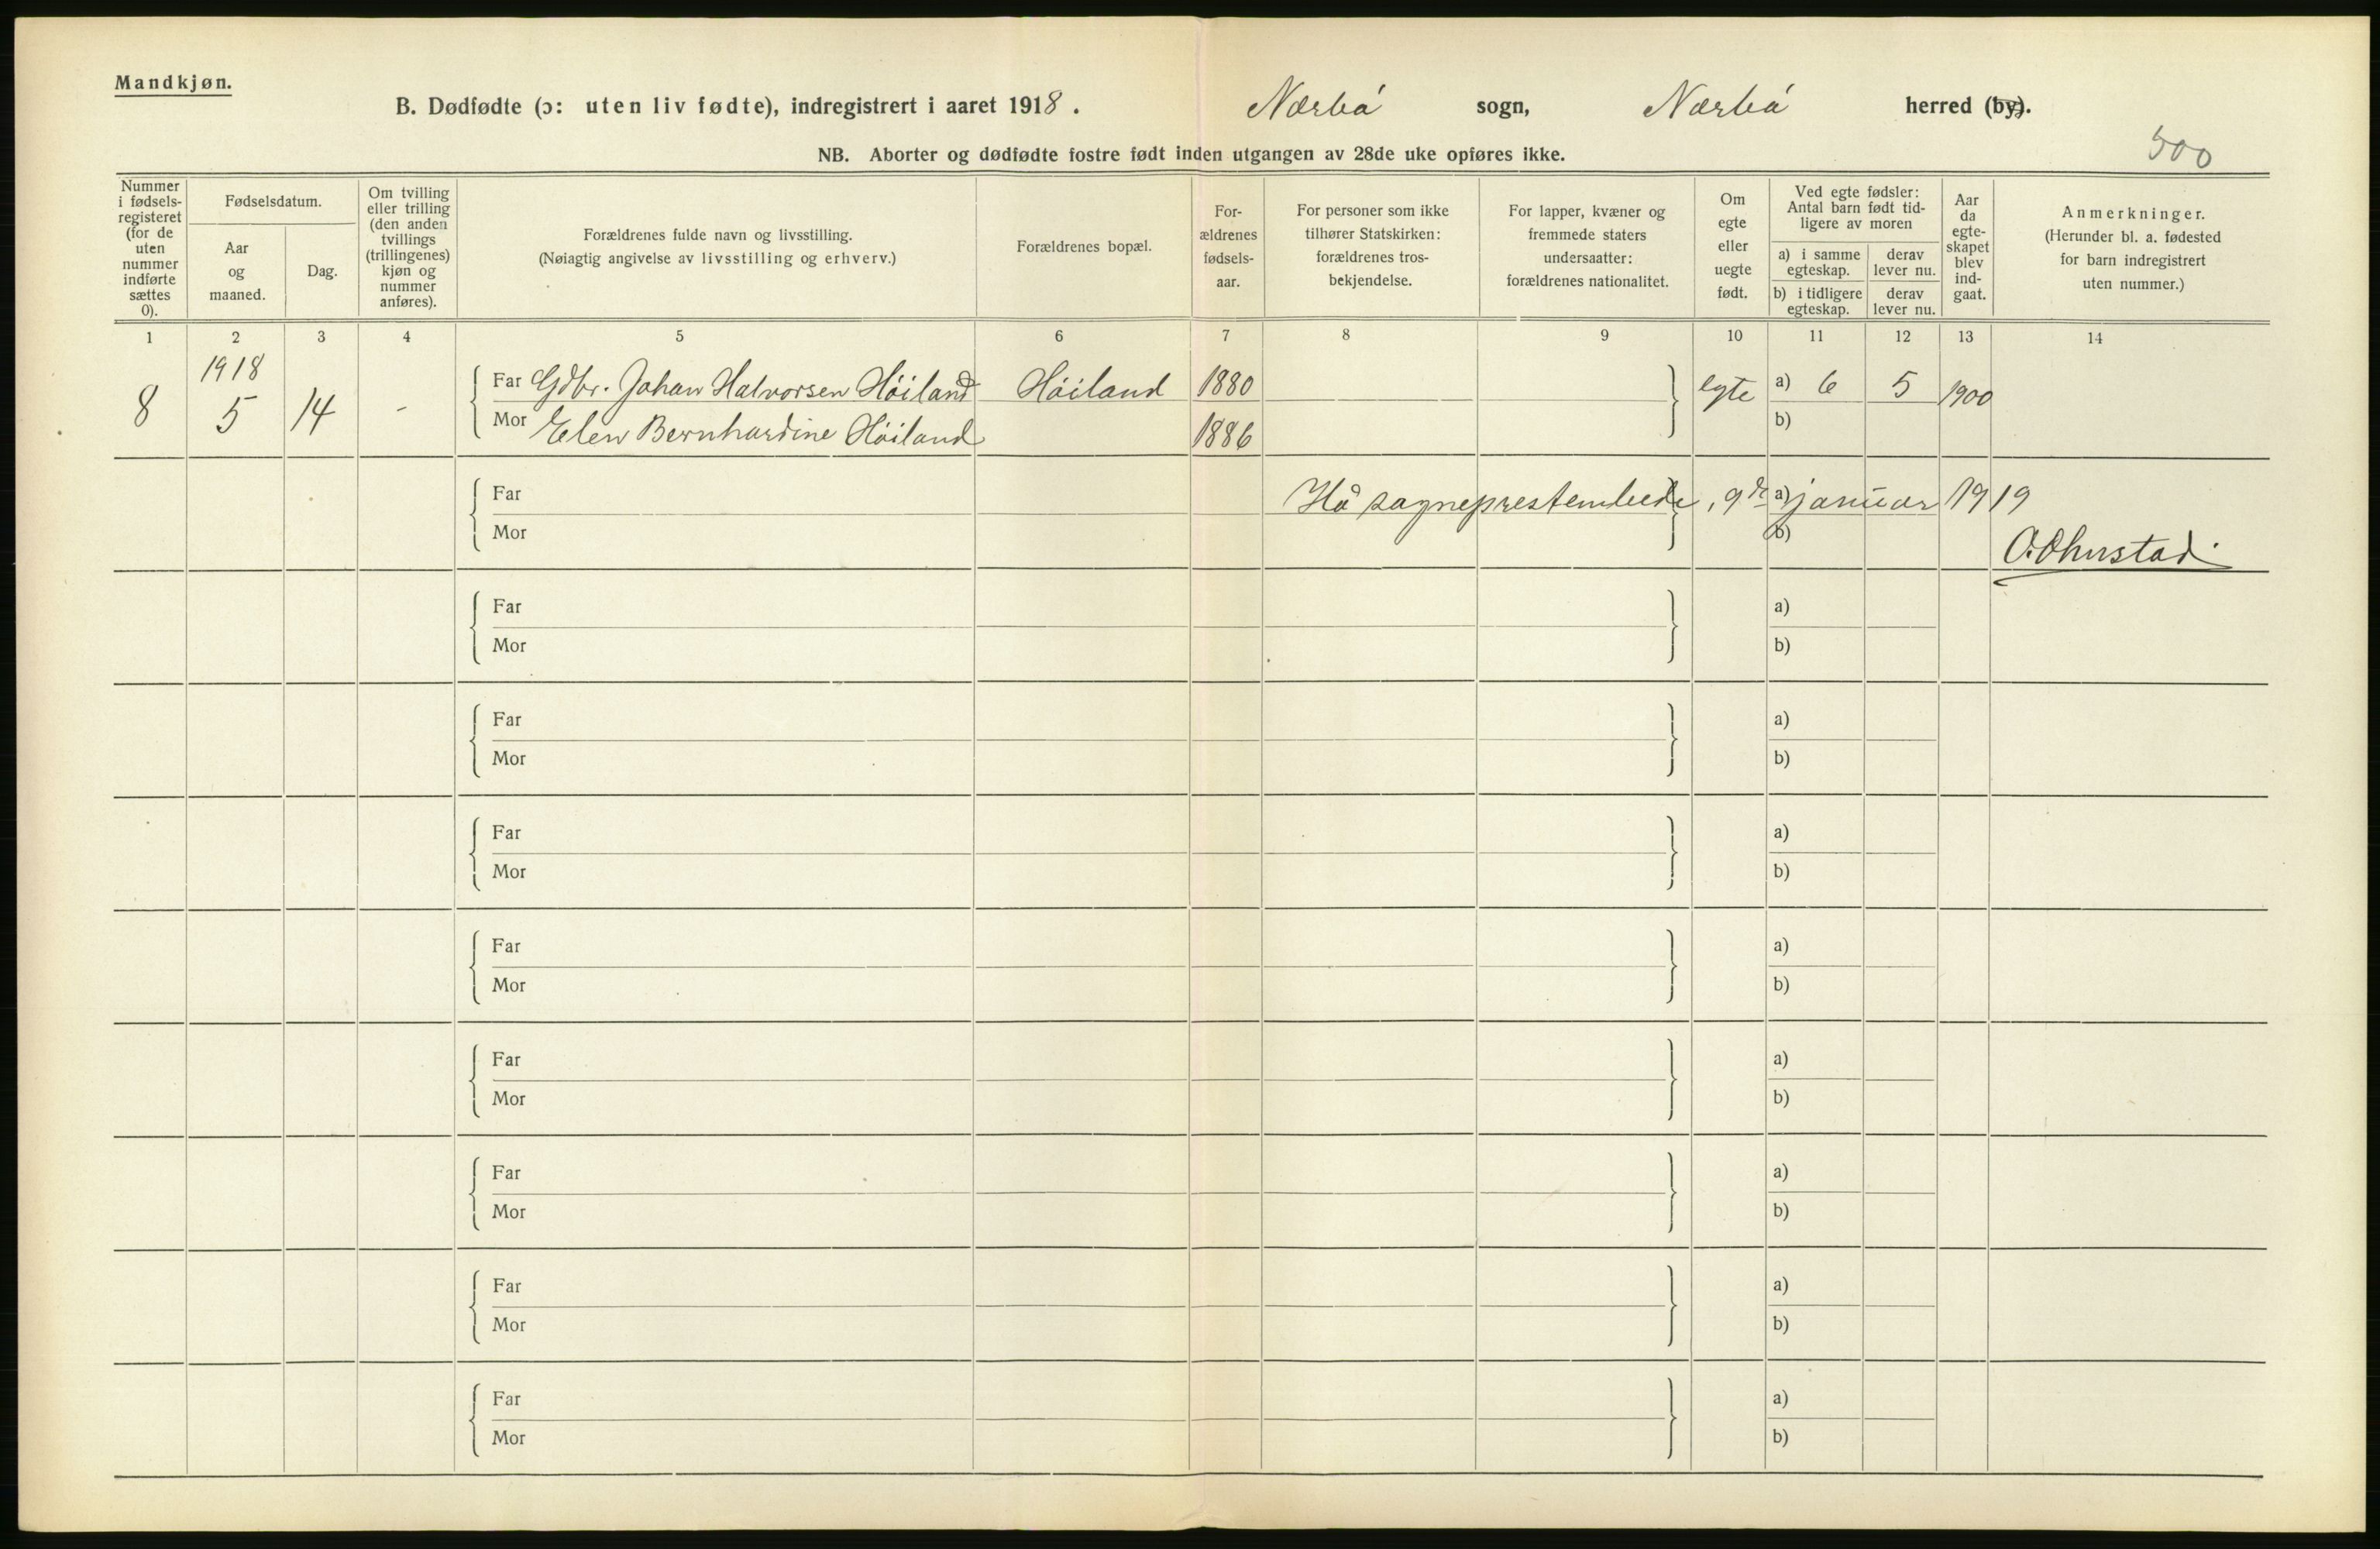 Mandkjøn.
B. Dødfødte (ɔ: uten liv fødte), indregistrert i aaret 1918. Nærbø sogn, Nærbø herred (by).
500
NB. Aborter og dødfødte fostre født inden utgangen av 28de uke opføres ikke.
Nummer
i fødsels-
registeret
(for de
uten
nummer
indførte
sættes
0).
Fødselsdatum.
Aar
og
maaned.
Dag.
Om tvilling
eller trilling
(den anden
tvillings
(trillingenes)
kjøn og
nummer
anføres).
Forældrenes fulde navn og livsstilling.
(Nøiagtig angivelse av livsstilling og erhverv.)
Forældrenes bopæl.
For-
ældrenes
fødsels-
aar.
For personer som ikke
tilhører Statskirken:
forældrenes tros-
bekjendelse.
For lapper, kvæner og
fremmede staters
undersaatter:
forældrenes nationalitet.
Om
egte
eller
uegte
født.
Ved egte fødsler:
Antal barn født tid-
ligere av moren
a) i samme
egteskap.
derav
lever nu.
b) i tidligere
egteskap.
derav
lever nu.
Aar
da
egte-
skapet
blev
ind-
gaat.
Anmerkninger.
(Herunder bl. a. fødested
for barn indregistrert
uten nummer.)
1 2 3 4 5 6 7 8 9 10 11 12 13 14
1918
8 5 14 - Far Gdbr. Johan Halvorsen Høiland Høiland 1880 egte a) 6 5 1900
Mor Elen Bernhardine Høiland 1886 b)
Far Hå sogneprestembede, 9de a) januar 1919
Mor b)
Far a)
Mor b)
Far a)
Mor b)
Far a)
Mor b)
Far a)
Mor b)
Far a)
Mor b)
Far a)
Mor b)
Far a)
Mor b)
Far a)
Mor b)